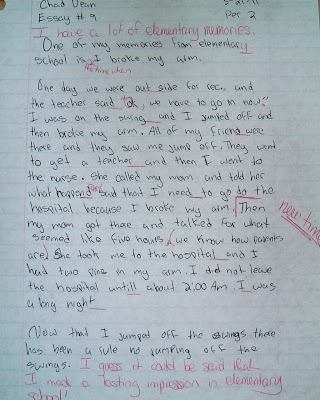 Chad Dean
Essay # 9 Per 2
I have a lot of elementary memories.
One of my memories from elementary
school is I broke my arm.
the time when
One day we were out side for rec. and
the teacher said "ok, we have to go in now."
I was on the swing and I jumped off and
then broke my arm. All of my friend were
there and they saw me jump off. They went
to get a teacher and then I went to
the nurse. She called my mom and told her
what happond said that I need to go to the
hospital because I broke my arm. Then
my mom got there and talked for what
seemed like five hours, we know how parents
are. She took me to the hospital and I
had two pins in my arm. I did not leave
the hospital untill about 2:00 Am. I was
a long night
Now that I jumped off the swings there
has been a rule no jumping off the
swings. I guess it could be said that
I made a lasting impression in elementary
school!